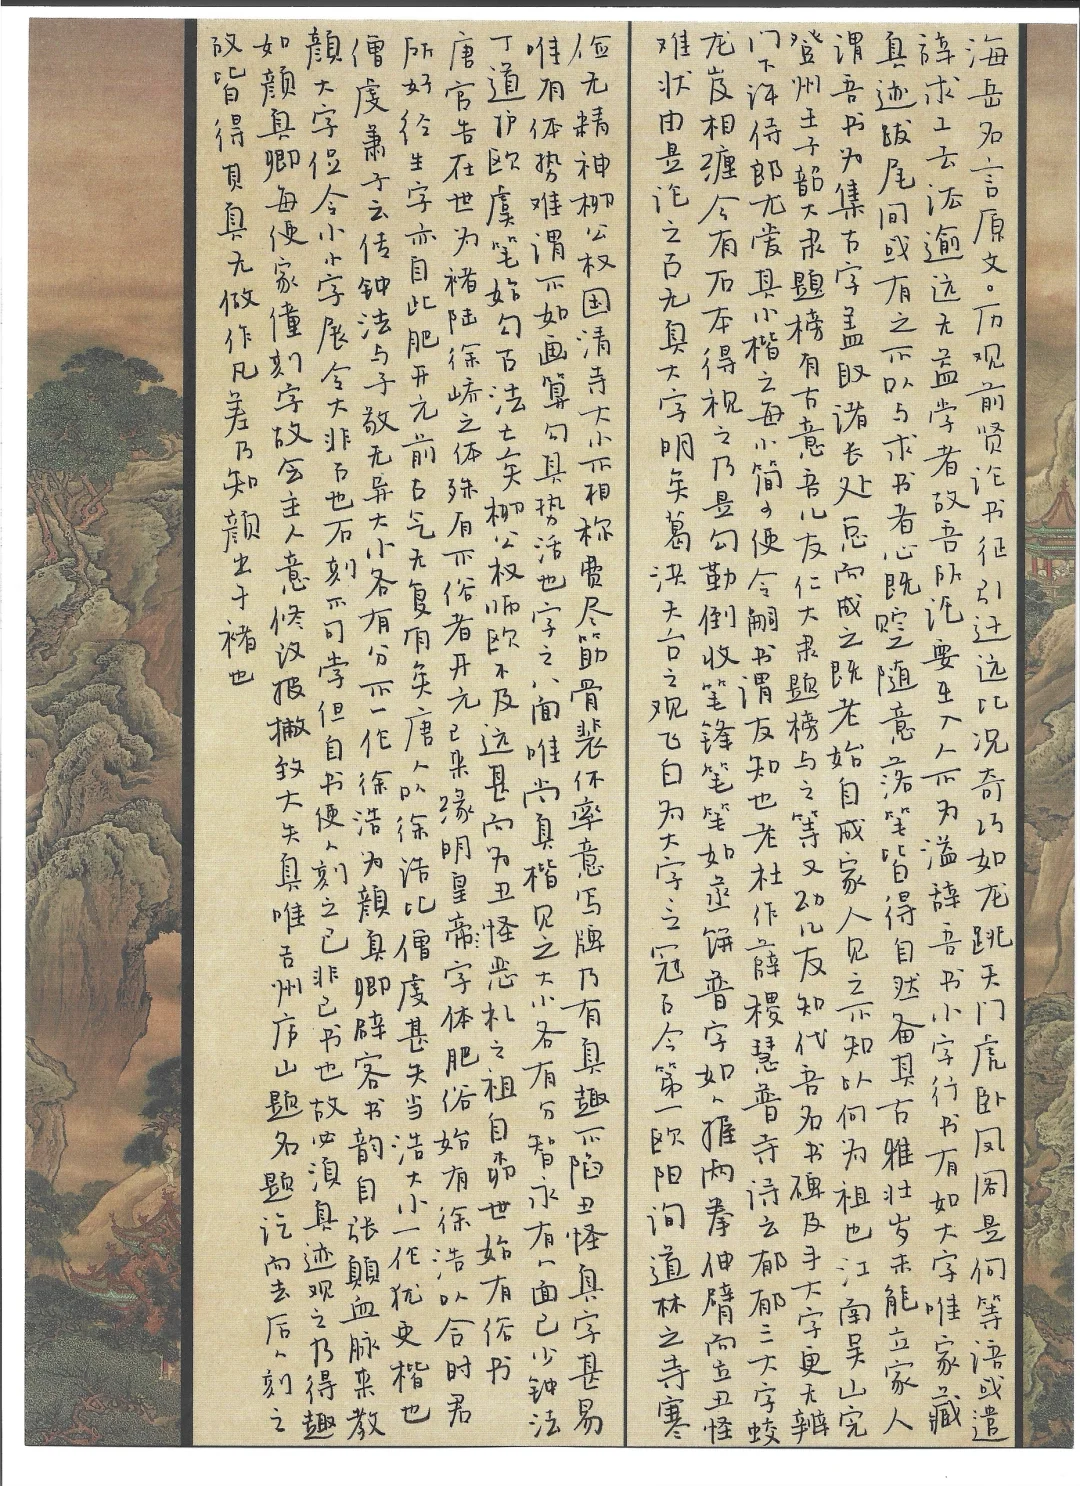 海岳名言原文。历观前贤论书征引迂远比况奇巧如龙跳天门虎卧凤阁是何等语或遣
辞求工去法逾远无益学者故吾所论要在入人不为溢辞吾书小字行书有如大字唯家藏
真迹跋尾间或有之不以与求书者心既贮之随意落笔皆得自然备其古雅壮岁未能立家人
谓吾书为集古字盖取诸长处总而成之既老始自成家人见之不知以何为祖也江南吴山完
登州王子韶大隶题榜有古意吾儿友仁大隶题榜与之等又幼儿友知代吾名书碑及手大字更无辨
门下许侍郎尤爱其小楷云每小简可便令嗣书谓友知也老杜作薛稷慧普寺诗云郁郁三大字蛟
龙岌相缠今有石本得视之乃是勾勒倒收笔锋笔笔如蒸饼普字如人握两拳伸臂而立丑怪
难状由是论之古无真大字明矣葛洪天台之观飞白为大字之冠古今第一欧阳询道林之寺寒
俭无精神柳公权国清寺大小不相称费尽筋骨裴休率意写牌乃有真趣不陷丑怪真字甚易
唯有体势难谓不如画算勾其势活也字之八面唯尚真楷见之大小各有分智永有八面已少钟法
丁道护欧虞笔始匀古法亡矣柳公权师欧不及远甚而为丑怪恶札之祖自柳世始有俗书
唐官告在世为褚陆徐峤之体殊有不俗者开元已来缘明皇帝字体肥俗始有徐浩以合时君
所好经生字亦自此肥开元前古气无复有矣唐人以徐浩比僧虔甚失当浩大小一作犹吏楷也
僧虔萧子云传钟法与子敬无异大小各有分不一作徐浩为颜真卿辟客书韵自张颠血脉来教
颜大字促令小小字展令大非古也石刻不可学但自书使人刻之已非己书也故必须真迹观之乃得趣
如颜真卿每使家僮刻字故会主人意修改披撇致大失真唯吉州庐山题名题讫而去后人刻之
故皆得其真无做作凡差乃知颜出于褚也